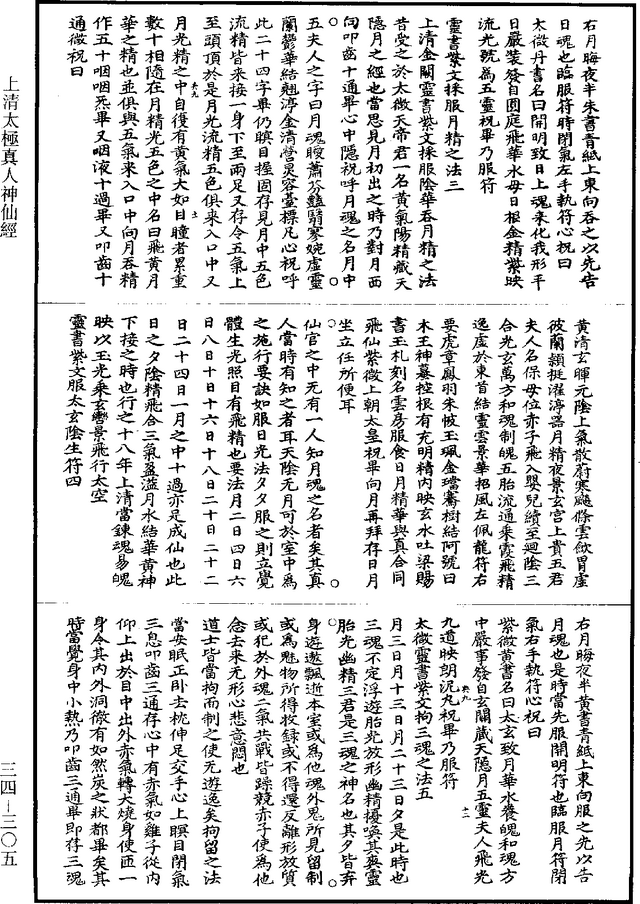 右月晦夜半朱書青紙上東向吞之以先告
日魂也臨服符時閉氣左手執符心祝曰
太微丹書名曰開明致日上魂來化我形平
日嚴裝發自圓庭飛華水母日根金精紫映
流光號為五靈祝畢乃服符
靈書紫文採服月精之法三
上清金闕靈書紫文採服陰華吞月精之法
昔受之於太微天帝君一名黃氣陽精藏天
隱月之經也當思見月初出之時乃對月西
向叩齒十通畢心中隱祝呼月魂之名月中
五夫人之字曰月魂曖蕭芬豔翳寥婉虛靈
蘭鬱華結翹淳金清瑩炅容臺標凡心祝呼
此二十四字畢仍瞑目握固存見月中五色
流精皆來接一身下至兩足又存令五氣上
至頭頂於是月光流精五色俱來入口中又
月光精之中自復有黃氣大如目瞳者累重
數十相隨在月精光五色之中名曰飛黃月
華之精也並俱與五氣來入口中向月吞精
作五十咽咽炁畢又咽液十過畢又叩齒十
通微祝曰
黃清玄暉元陰上氣散蔚寒飇條雲斂胃虛
彼蘭穎挺濯渟器月精夜景玄宮上貴五君
夫人各保母位赤子飛入嬰兒續至迴陰三
合光玄萬方和魂制魄五胎流通乘霞飛精
逸虛於東首結靈雲景華招風左佩龍符右
要虎章鳳羽朱帔玉珮金璫騫樹結阿號曰
木王神蟇控根有充明精內映玄水吐梁賜
書玉札刻名雲房服食日月精華與真合同
飛仙紫微上朝太皇祝畢向月再拜存日月
坐立任所便耳
仙官之中无有一人知月魂之名者矣其真
人當時有知之者耳天陰无月可於室中為
之施行要訣如服日光法夕夕服之則立覺
體生光照目有飛精也要法月二日四日六
日八日十日十六日十八日二十日二十二
日二十四日一月之中十過亦足成仙也此
日之夕陰精飛合三氣盈溢月水結華黃神
下接之時也行之十八年上清當鍊魂易魄
映以玉光乘玄轡景飛行太空
靈書紫文服太玄陰生符四
右月晦夜半黃書青紙上東向服之先以告
月魂也是時當先服開明符也臨服月符閉
氣右手執符心祝曰
紫微黃書名曰太玄致月華水養魄和魂方
中嚴事發自玄關藏天隱月五靈夫人飛光
九道映朗泥丸祝畢乃服符
太微靈書紫文拘三魂之法五
月三日月十三日月二十三日夕是此時也
三魂不定浮遊胎光放形幽精擾喚其爽靈
胎光幽精三君是三魂之神名也其夕皆弃
身遊遨飄逝本室或為他魂外鬼所見留制
或為魅物所得收錄或不得還反離形放質
或犯於外魂二氣共戰皆躁競赤子使為他
念去來无形心悲意悶也
道士皆當拘而制之使无遊逸矣拘留之法
當安眠正卧去枕伸足交手心上瞑目閉氣
三息叩齒三通存心中有赤氣如雞子從內
仰上出於目中出外赤氣轉大燒身使匝一
身令其內外洞徹有如然炭之狀都畢矣其
時當覺身中小熱乃叩齒三通畢即存三魂
上清太極真人神仙經
三四-三〇五